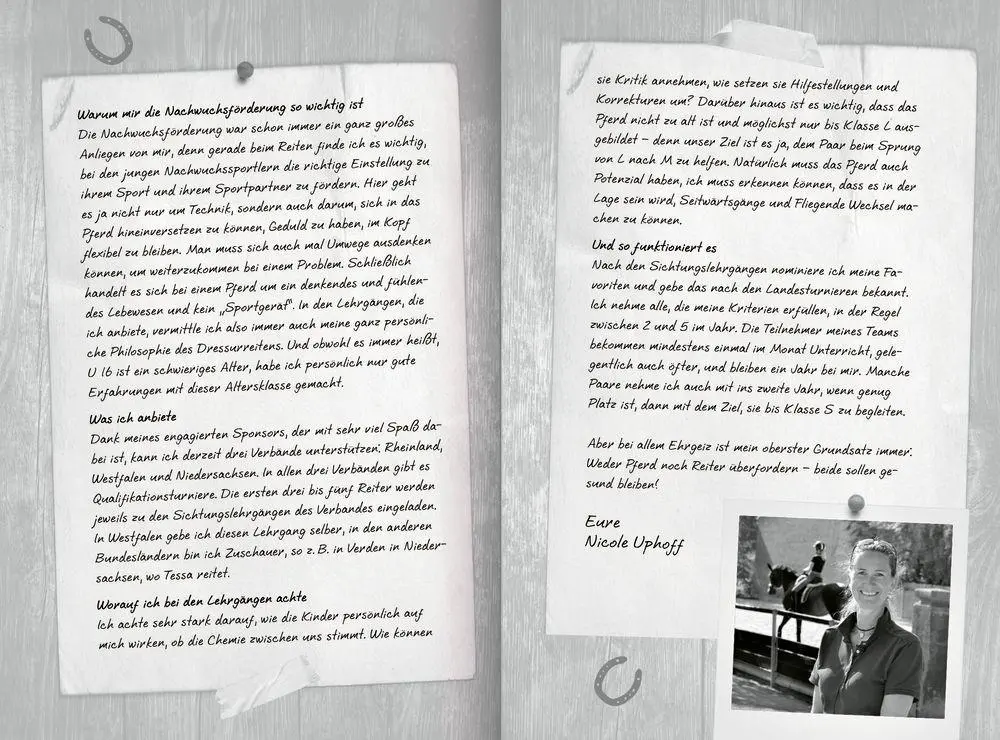 Warum mir die Nachwuchsförderung so wichtig ist
Die Nachwuchsförderung war schon immer ein ganz großes
Anliegen von mir, denn gerade beim Reiten finde ich es wichtig,
bei den jungen Nachwuchssportlern die richtige Einstellung zu
ihrem Sport und ihrem Sportpartner zu fördern. Hier geht
es ja nicht nur um Technik, sondern auch darum, sich in das
Pferd hineinversetzen zu können, Geduld zu haben, im Kopf
flexibel zu bleiben. Man muss sich auch mal Umwege ausdenken
können, um weiterzukommen bei einem Problem. Schließlich
handelt es sich bei einem Pferd um ein denkendes und fühlen-
des Lebewesen und kein „Sportgerät“. In den Lehrgängen, die
ich anbiete, vermittle ich also immer auch meine ganz persönli-
che Philosophie des Dressurreitens. Und obwohl es immer heißt,
U 16 ist ein schwieriges Alter, habe ich persönlich nur gute
Erfahrungen mit dieser Altersklasse gemacht.
Was ich anbiete
Dank meines engagierten Sponsors, der mit sehr viel Spaß da-
bei ist, kann ich derzeit drei Verbände unterstützen: Rheinland,
Westfalen und Niedersachsen. In allen drei Verbänden gibt es
Qualifikationsturniere. Die ersten drei bis fünf Reiter werden
jeweils zu den Sichtungslehrgängen des Verbandes eingeladen.
In Westfalen gebe ich diesen Lehrgang selber, in den anderen
Bundesländern bin ich Zuschauer, so z. B. in Verden in Nieder-
sachsen, wo Tessa reitet.
Worauf ich bei den Lehrgängen achte
Ich achte sehr stark darauf, wie die Kinder persönlich auf
mich wirken, ob die Chemie zwischen uns stimmt. Wie können
sie Kritik annehmen, wie setzen sie Hilfestellungen und
Korrekturen um? Darüber hinaus ist es wichtig, dass das
Pferd nicht zu alt ist und möglichst nur bis Klasse L aus-
gebildet – denn unser Ziel ist es ja, dem Paar beim Sprung
von L nach M zu helfen. Natürlich muss das Pferd auch
Potenzial haben, ich muss erkennen können, dass es in der
Lage sein wird, Seitwärtsgänge und Fliegende Wechsel ma-
chen zu können.
Und so funktioniert es
Nach den Sichtungslehrgängen nominiere ich meine Fa-
voriten und gebe das nach den Landesturnieren bekannt.
Ich nehme alle, die meine Kriterien erfüllen, in der Regel
zwischen 2 und 5 im Jahr. Die Teilnehmer meines Teams
bekommen mindestens einmal im Monat Unterricht, gele-
gentlich auch öfter, und bleiben ein Jahr bei mir. Manche
Paare nehme ich auch mit ins zweite Jahr, wenn genug
Platz ist, dann mit dem Ziel, sie bis Klasse S zu begleiten.
Aber bei allem Ehrgeiz ist mein oberster Grundsatz immer:
Weder Pferd noch Reiter überfordern – beide sollen ge-
sund bleiben!
Eure
Nicole Uphoff